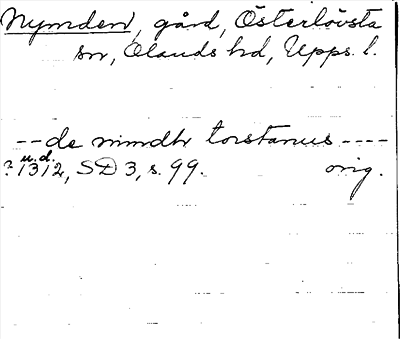 Nymden, gård, Österlövsta
sn, Olands hd, Upps. l.
-- de nimdhr torstanus ----
u.d.
? 1312, SD 3, s. 99. orig.